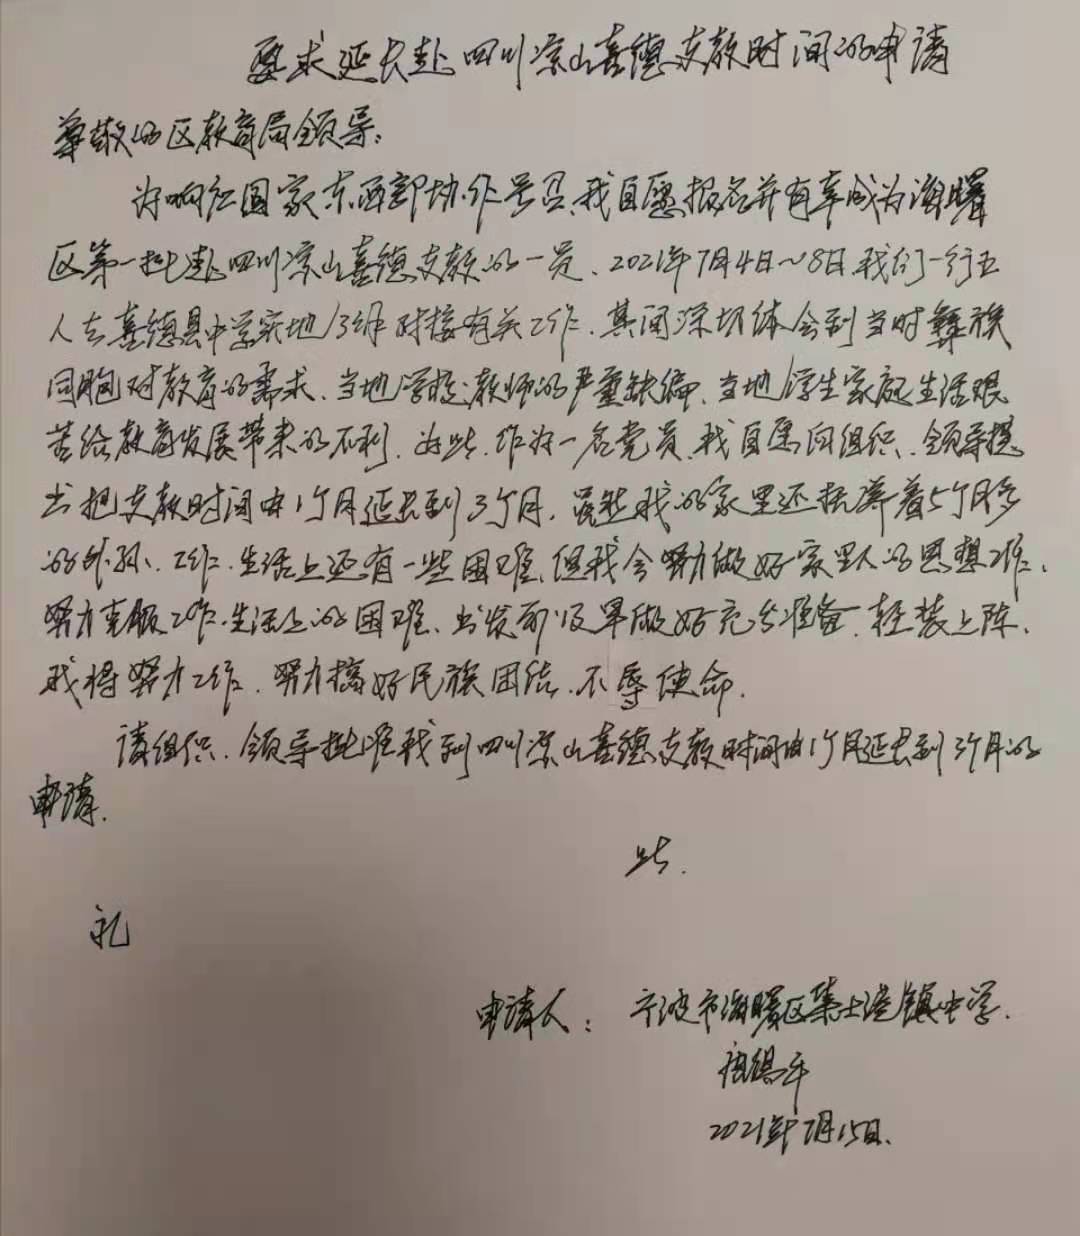 要求延长赴四川凉山喜德支教时间的申请
尊敬的区教育局领导:
为响应国家东西部协作号召,我自愿报名并有幸成为海曙
区第一批赴四川凉山喜德支教的一员、2021年7月4日～8日,我们一行五
人去喜德县中学实地 对接有关工作.其间深切体会到当时彝族
同胞对教育的需求、当地学校教师的严重缺编、当地学生家庭生活艰
苦给教育发展带来的不利.为此.作为一名党员,我自愿向组织、领导提
出把支教时间由1个月延长到3个月.虽然我的家里还抚养着5个月多
的外孙、工作、生活上还有一些困难、但我会努力做好家里人的思想工作、
努力克服工作、生活上的困难、出发前及早做好充分准备.轻装上阵.
我将努力工作.努力搞好民族团结.不辱使命.
请组织、领导批准我到四川凉山喜德支教时间由1个月延长到3个月的
申请.
此致.
礼
申请人: 宁波市海曙区集士港镇中学.
2021年7月15日.